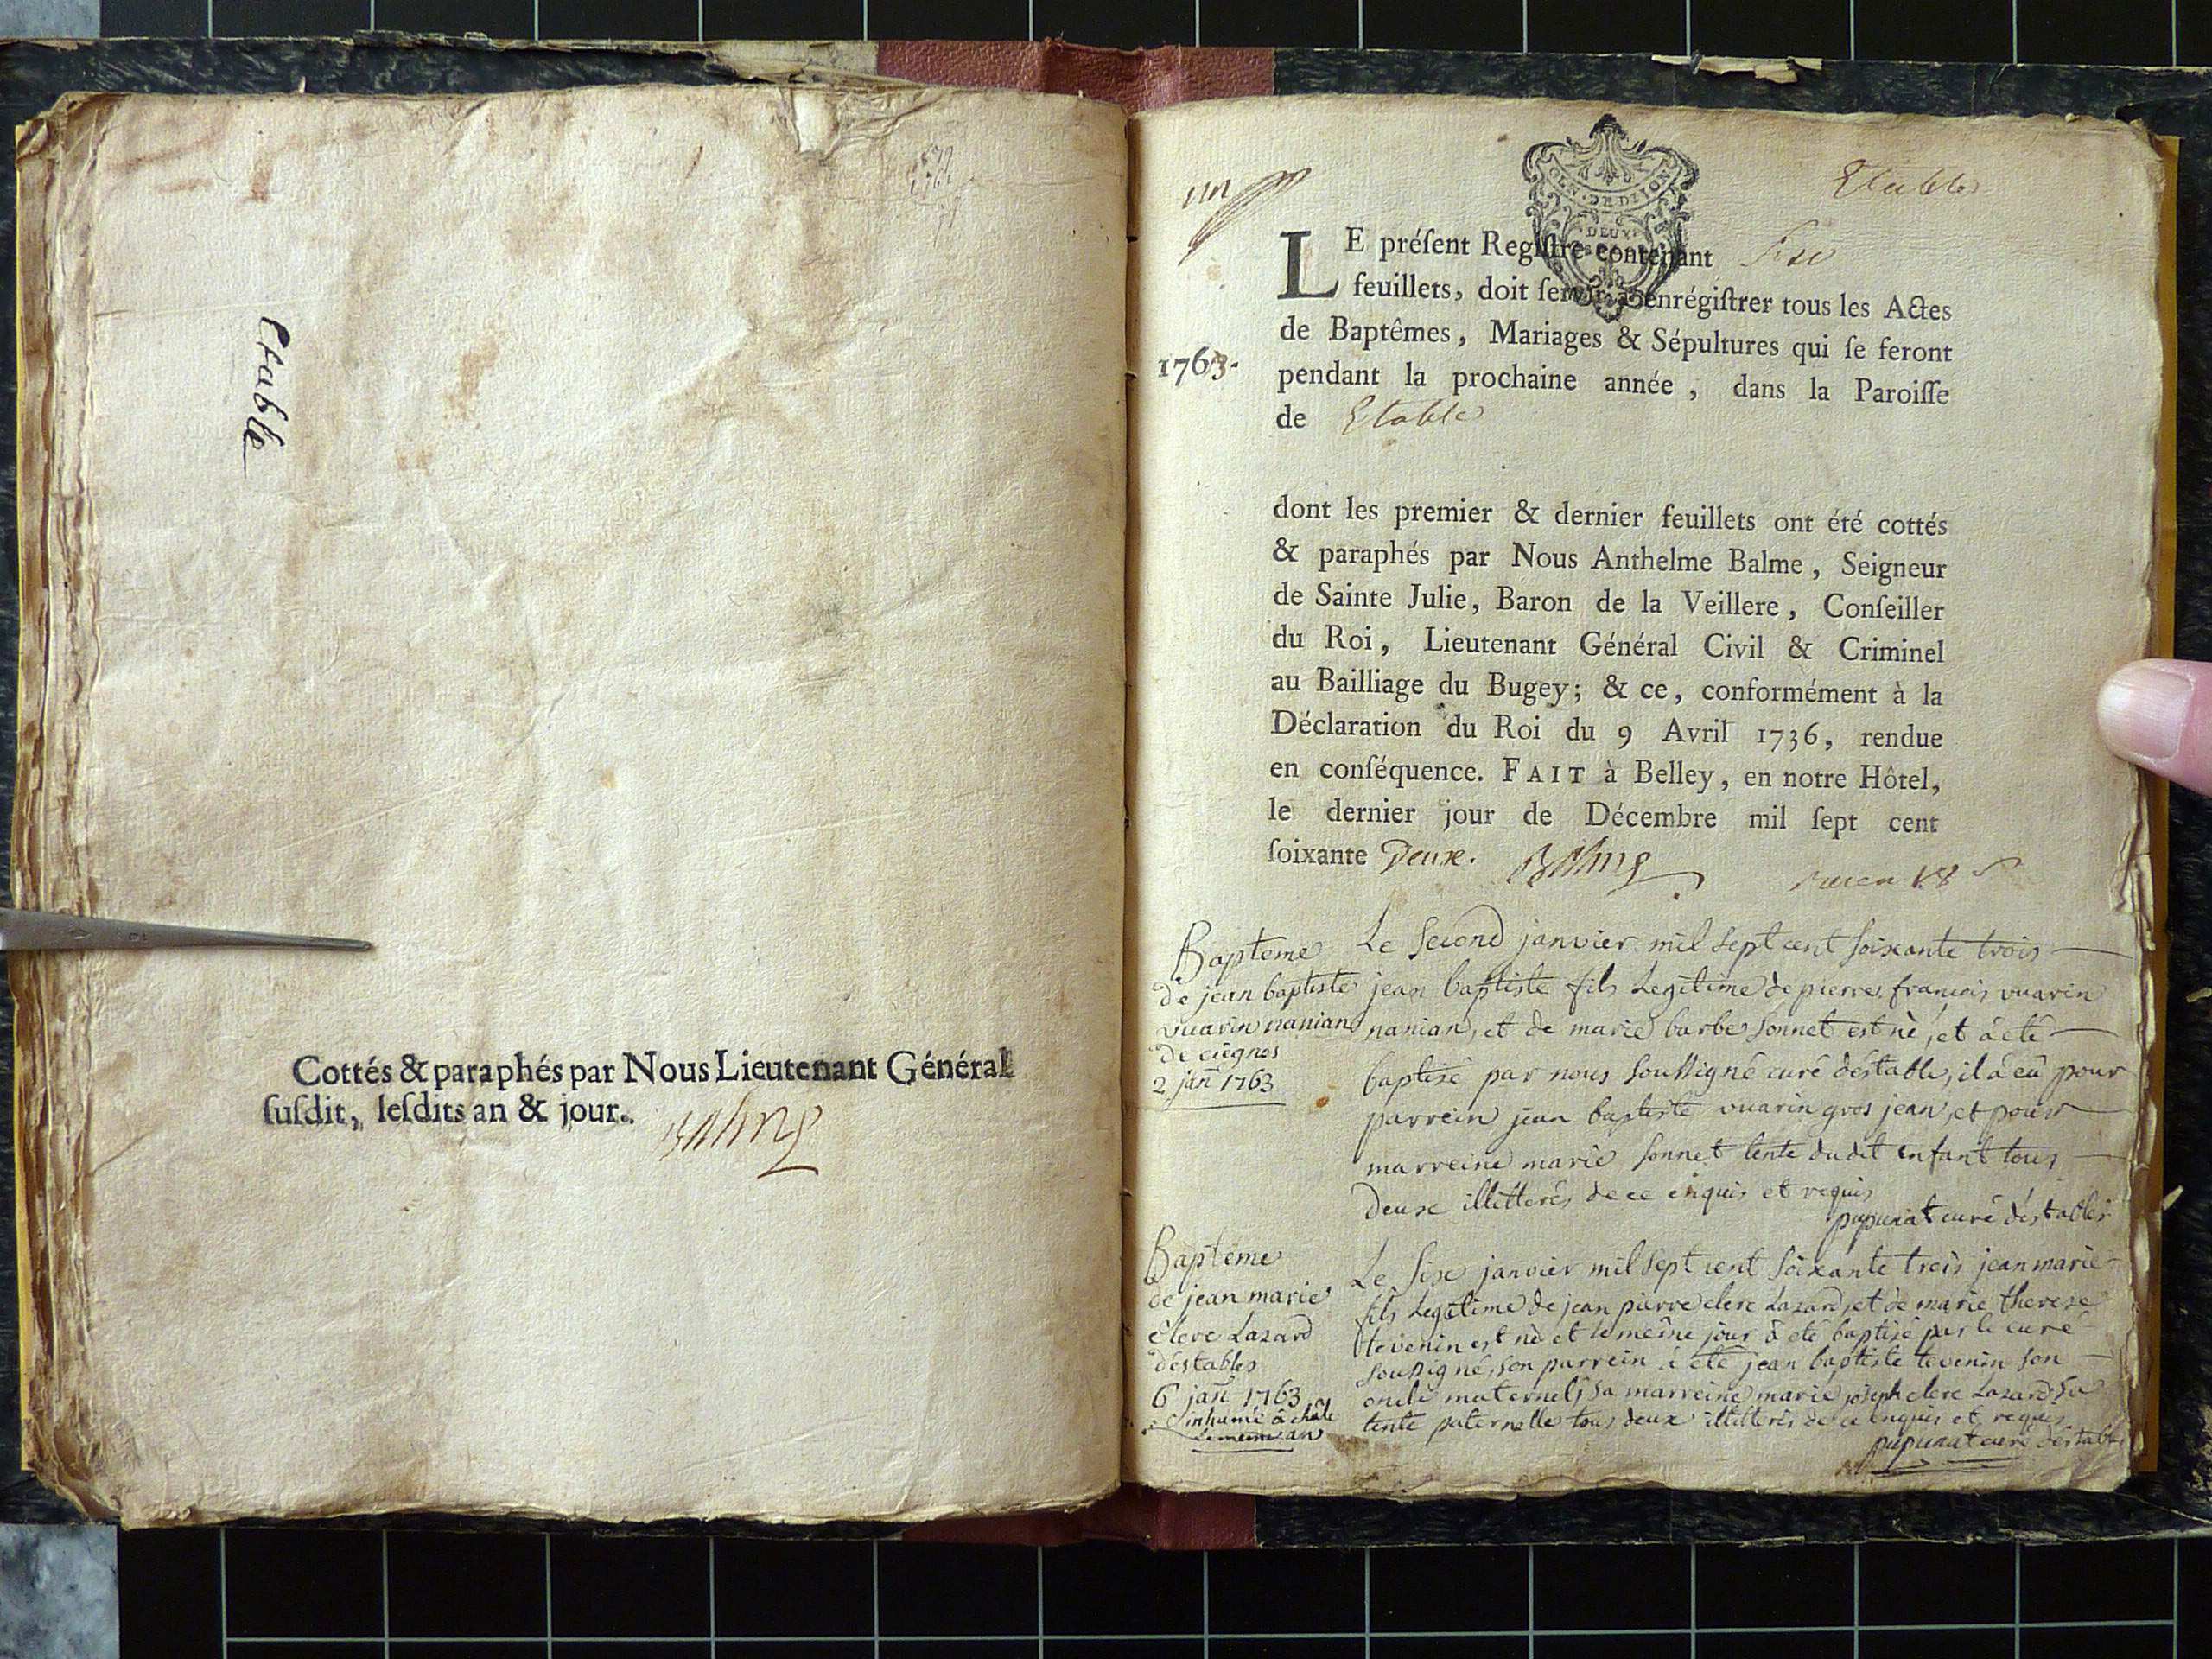 Etable
Cottés & paraphés par Nous Lieutenant Général
ſuſdit, leſdits an & jour.
Balme
un
GEN. DE DIJON
DEUX
Etables
LE préſent Regiſtre contenant Six
feuillets, doit ſervir à enrégiſtrer tous les Actes
de Baptêmes, Mariages & Sépultures qui ſe feront
1763.
pendant la prochaine année, dans la Paroiſſe
de Etable
dont les premier & dernier feuillets ont été cottés
& paraphés par Nous Anthelme Balme, Seigneur
de Sainte Julie, Baron de la Veillere, Conſeiller
du Roi, Lieutenant Général Civil & Criminel
au Bailliage du Bugey; & ce, conformément à la
Déclaration du Roi du 9 Avril 1736, rendue
en conſéquence. FAIT à Belley, en notre Hôtel,
le dernier jour de Décembre mil ſept cent
ſoixante Deux. Balme
Bapteme
de jean baptiste
vuarin nanian
de ciegnes
2 jan̄ 1763
Le Second janvier mil sept cent soixante trois
jean baptiste fils Legitime de pierre francois vuarin
nanian, et de marie barbe sonnet est nè, et à eté
baptisé par nous soussigné curé déstable, il à eû pour
parrein jean baptiste vuarin gros jean, et pour
marreine marie sonnet tente dudit enfant tous
deux illitterés de ce enquis et requis
pupunat curé déstables
Bapteme
de jean marie
clerc Lazard
déstables
6 jan̄ 1763
inhumé à
le meme an
Le six janvier mil sept cent soixante trois jean marie
fils Legitime de jean pierre clerc Lazard, et de marie therese
tevenin est nè et le même jour à eté baptisé par le curé
soussigné, son parrein à eté jean baptiste tevenin son
oncle maternel, sa marreine marie joseph clerc Lazard sa
tente paternelle tous deux illitterés de ce enquis et requis
pupunat curé déstables